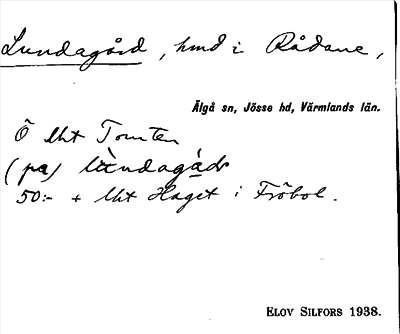 Lundagård, hmd i Rådane,
Älgå sn, Jösse hd, Värmlands län.
Ö lht Tomten
(pa) lùndagáds
50:- + lht Haget i Fröbol.
ELOV SILFORS 1938.